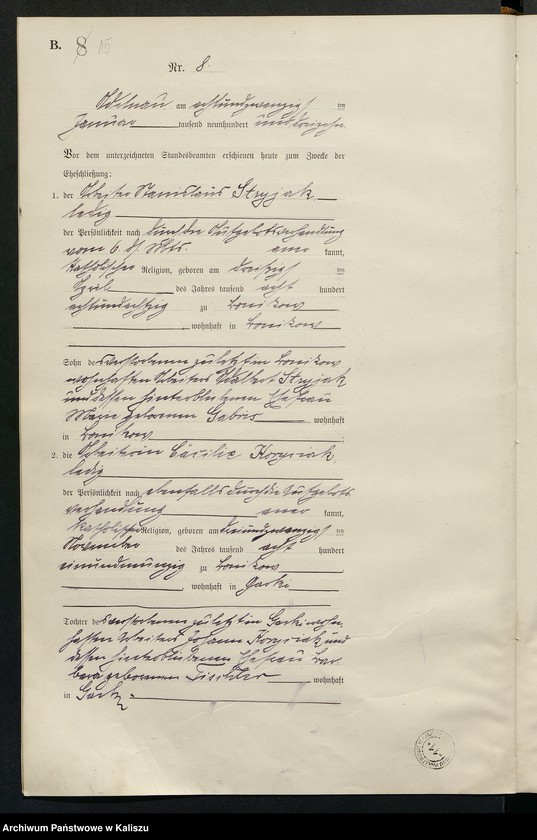 B. 8 15
Nr. 8.
Odelnau am achtundzwanzigsten
Januar tausend neunhundert unddreizehn.
Vor dem unterzeichneten Standesbeamten erschienen heute zum Zwecke der
Eheschließung:
1. der Arbeiter Stanislaus Stryjak,
ledig
der Persönlichkeit nach durch die Aufgebotsverhandlung
vom 6. ds. Mts. aner kannt,
katholischer Religion, geboren am dreißigsten
April des Jahres tausend acht hundert
achtundachtzig zu
, wohnhaft in
Sohn des verstorbenen zuletzt in
wohnhaften Arbeiters Adalbert Stryjak
und dessen hinterbliebenen Ehefrau
Marie geborenen Gabris wohnhaft
in
2. die Arbeiterin Cäcilie Korysiak,
ledig
der Persönlichkeit nach ebenfalls durch die Aufgebots
verhandlung aner kannt,
katholischer Religion, geboren am
November des Jahres tausend acht hundert
einundneunzig zu
, wohnhaft in Gorki
Tochter des verstorbenen zuletzt in Gorki wohn-
haften Arbeiters Johann Korysiak und
dessen hinterbliebenen Ehefrau Bar-
bara geborenen Tischler wohnhaft
in Gorki.
Archiwum Państwowe w Kaliszu